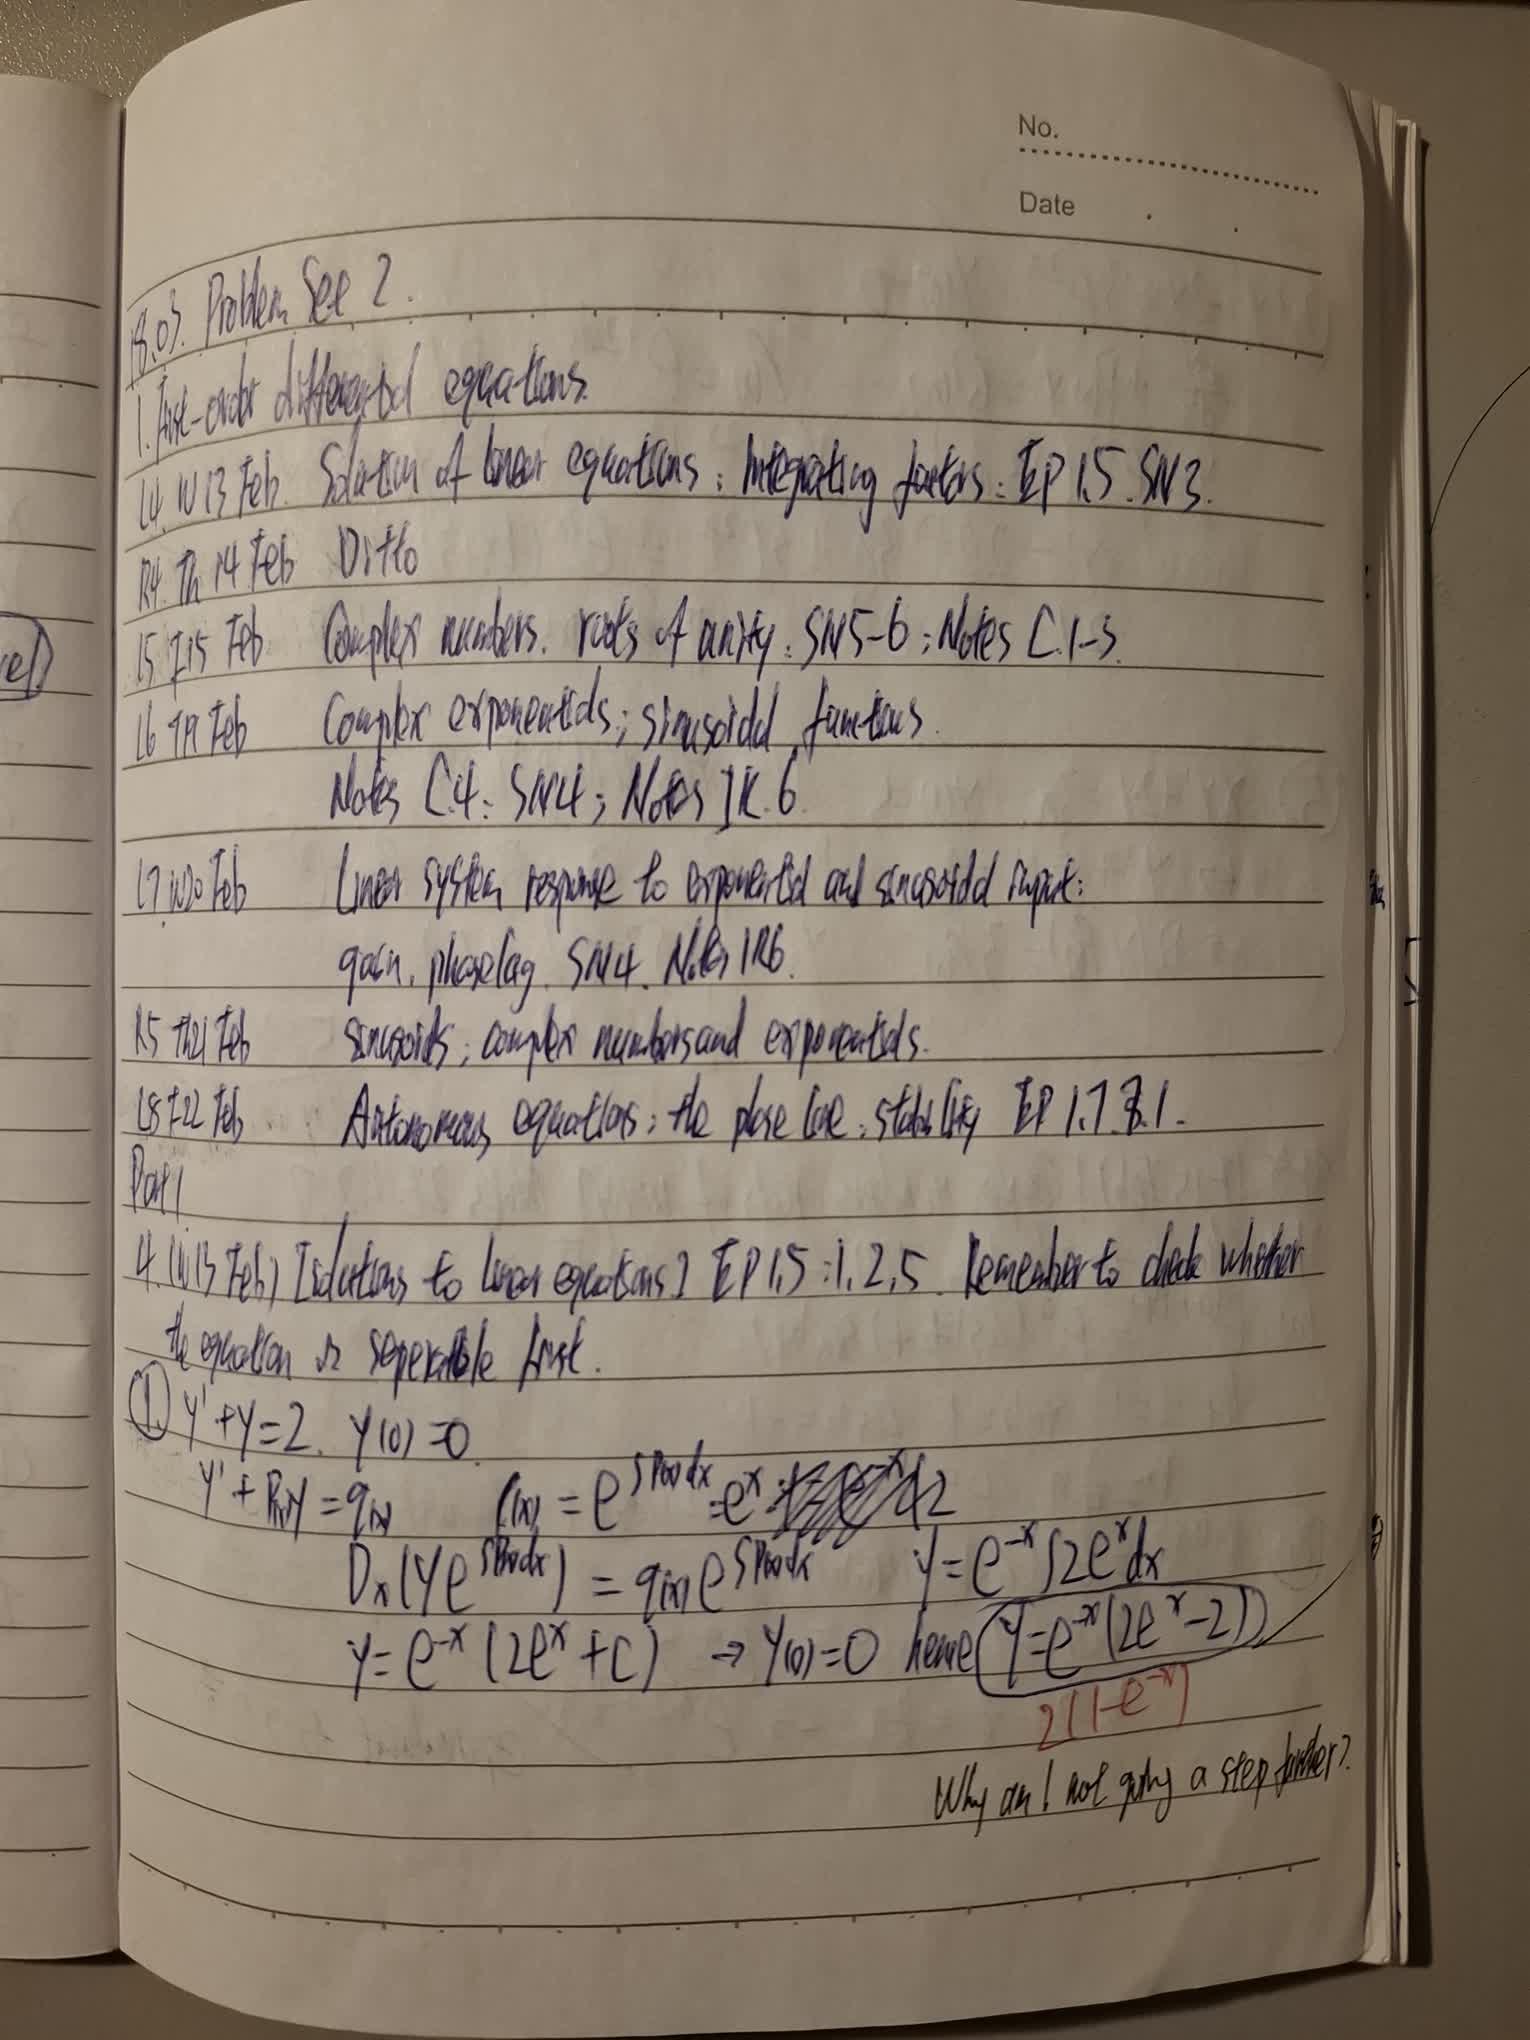 No.
Date
18.03. Problem Set 2.
1. First-order differential equations.
L4. W13 Feb. Solution of linear equations; Integrating factors: EP 1.5. SN3.
R4. Th 14 Feb Ditto
L5 F15 Feb Complex numbers. roots of unity: SN5-6; Notes C.1-3.
L6 T19 Feb Complex exponentials; sinusoidal functions.
Notes C.4: SN4; Notes IR.6
L7 W20 Feb Linear system response to exponential and sinusoidal input:
gain, phase lag. SN4. Notes IR6.
R5 Th21 Feb sinusoids; complex numbers and exponentials.
L8 F22 Feb Autonomous equations; the phase line; stability EP 1.7. 8.1.
Part 1
4. (W13 Feb) [Solutions to linear equations] EP 1.5: 1, 2, 5. Remember to check whether
the equation is seperatble first.
① y'+y=2. y(0)=0
y'+P(x)y=q(x) ρ(x) = e^∫P(x)dx = e^x
Dx(ye^∫P(x)dx) = q(x)e^∫P(x)dx y=e^-x∫2e^xdx
y=e^-x(2e^x+C) → y(0)=0 hence y=e^-x(2e^x-2)
2(1-e^-x)
Why am I not going a step further?